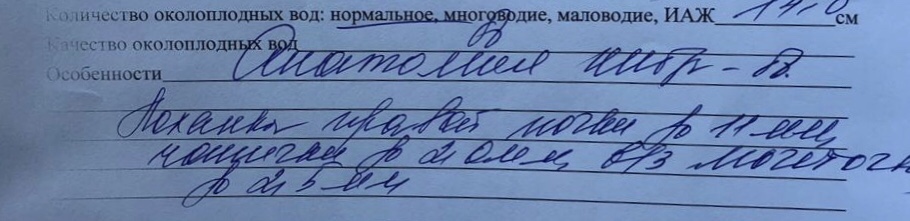 Количество околоплодных вод: нормальное, многоводие, маловодие, ИАЖ 14,0 см
Качество околоплодных вод
Особенности Анатомия
Лоханка правой почки до 11 мм,
до 20 мм, в/з
до 25 мм